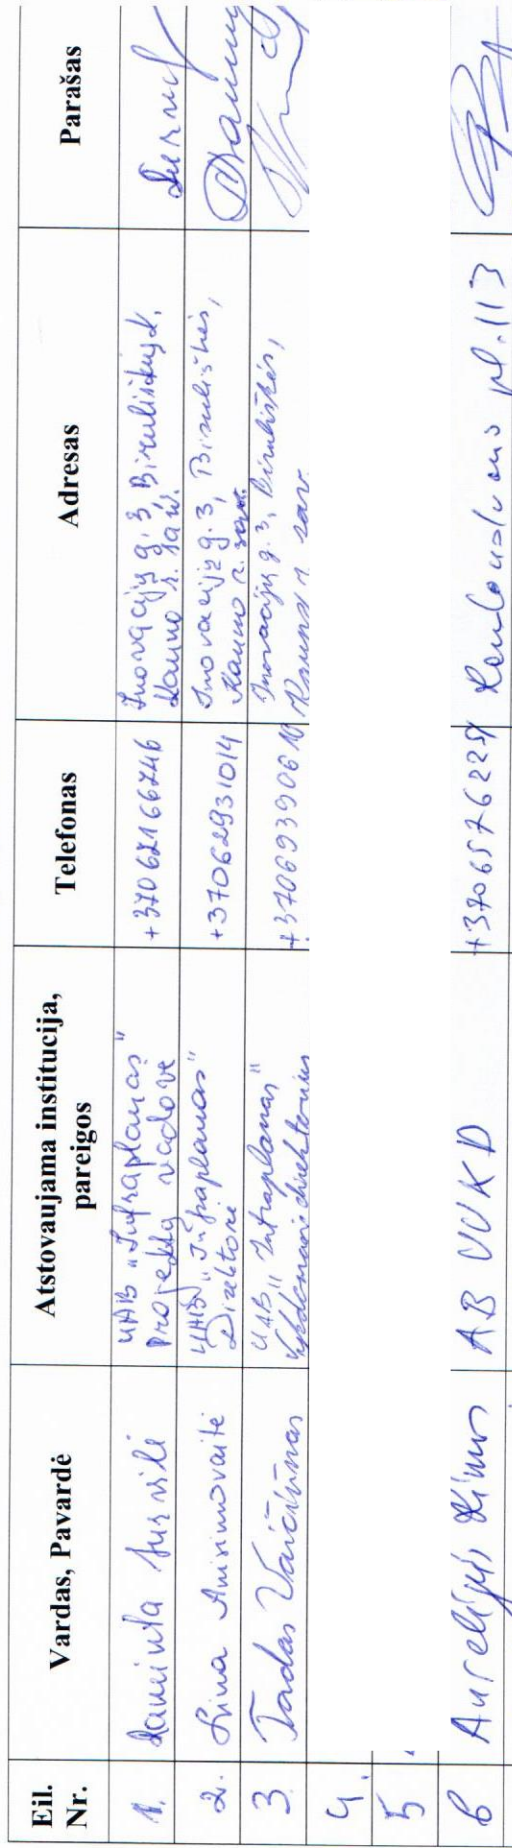 Eil. Nr. Vardas, Pavardė Atstovaujama institucija, pareigos Telefonas Adresas Parašas
1. Raminta Survilė UAB „Infraplanas" Projektų vadovė +37062166246 Inovacijų g. 3, Biruliškių k. Kauno r. sav.
2. Lina Anisimovaitė UAB „Infraplanas" Direktorė +37062931014 Inovacijų g. 3, Biruliškės, Kauno r. sav.
3. Tadas Vaičiūnas UAB „Infraplanas" Vykdomasis direktorius +37069390610 Inovacijų g. 3, Biruliškės, Kauno r. sav.
4.
5.
6 Aurelijus Kimus AB VVKD pl. 113